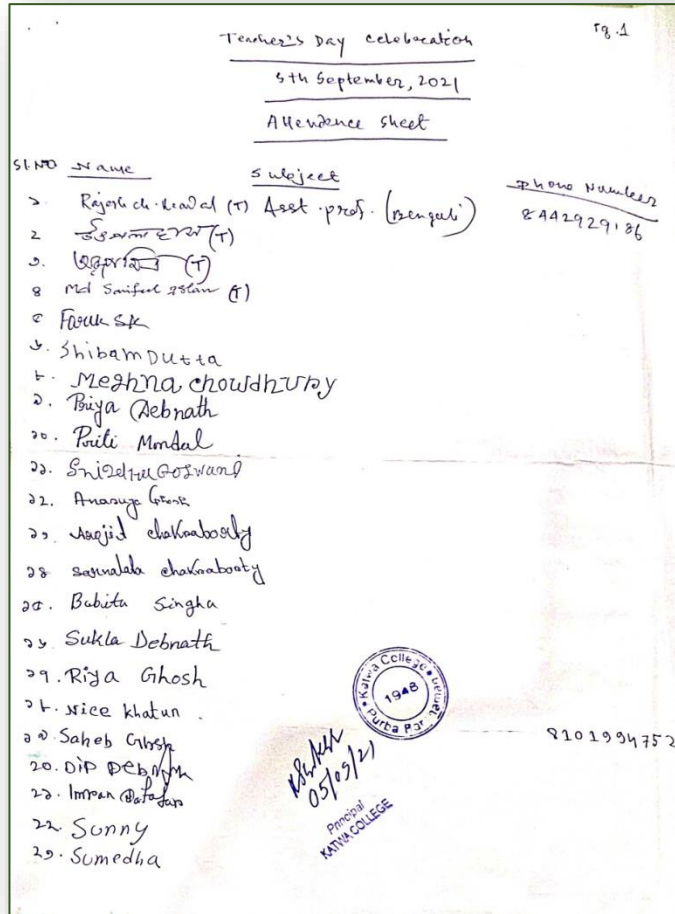 Pg.1
Teacher's Day celebration
5th September, 2021
Attendence sheet
Sl.NO Name Subject Phone Number
১ Rajesh ch. (T) Asst. prof. (Bengali) 8442929186
২ (T)
৩. (T)
৪ Md Saiful Islam (T)
৫ Faruk SK
৬. Shibam Dutta
৮. Meghna chowdhury
৯. Priya Debnath
১০. Priti Mondal
১১. Goswami
১২. Anasuya Ghosh
১৩ chakraborty
১৪ chakraborty
১৫. Babita Singha
১৬ Sukla Debnath
১৭. Riya Ghosh
১৮. Nice Khatun.
১৯. Saheb Ghosh 8101994752
২০. DIP DEBNATH
২১. Imran
২২. Sunny
২৩. Sumedha
Katwa College
1948
Purba Bardhaman
05/09/21
Principal
KATWA COLLEGE